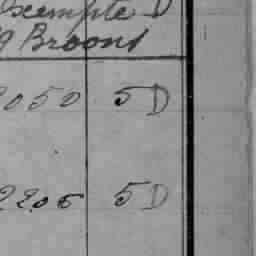 Exemple D
9 Broons
2050 5 D
2206 5 D